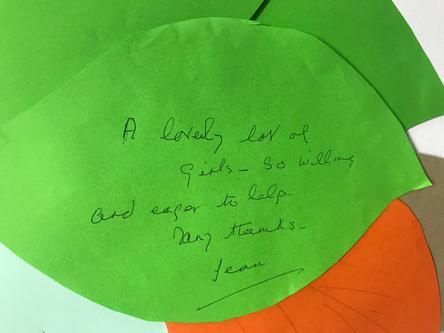 A lovely lot of
girls - so willing
and eager to help -
Many thanks -
Jean